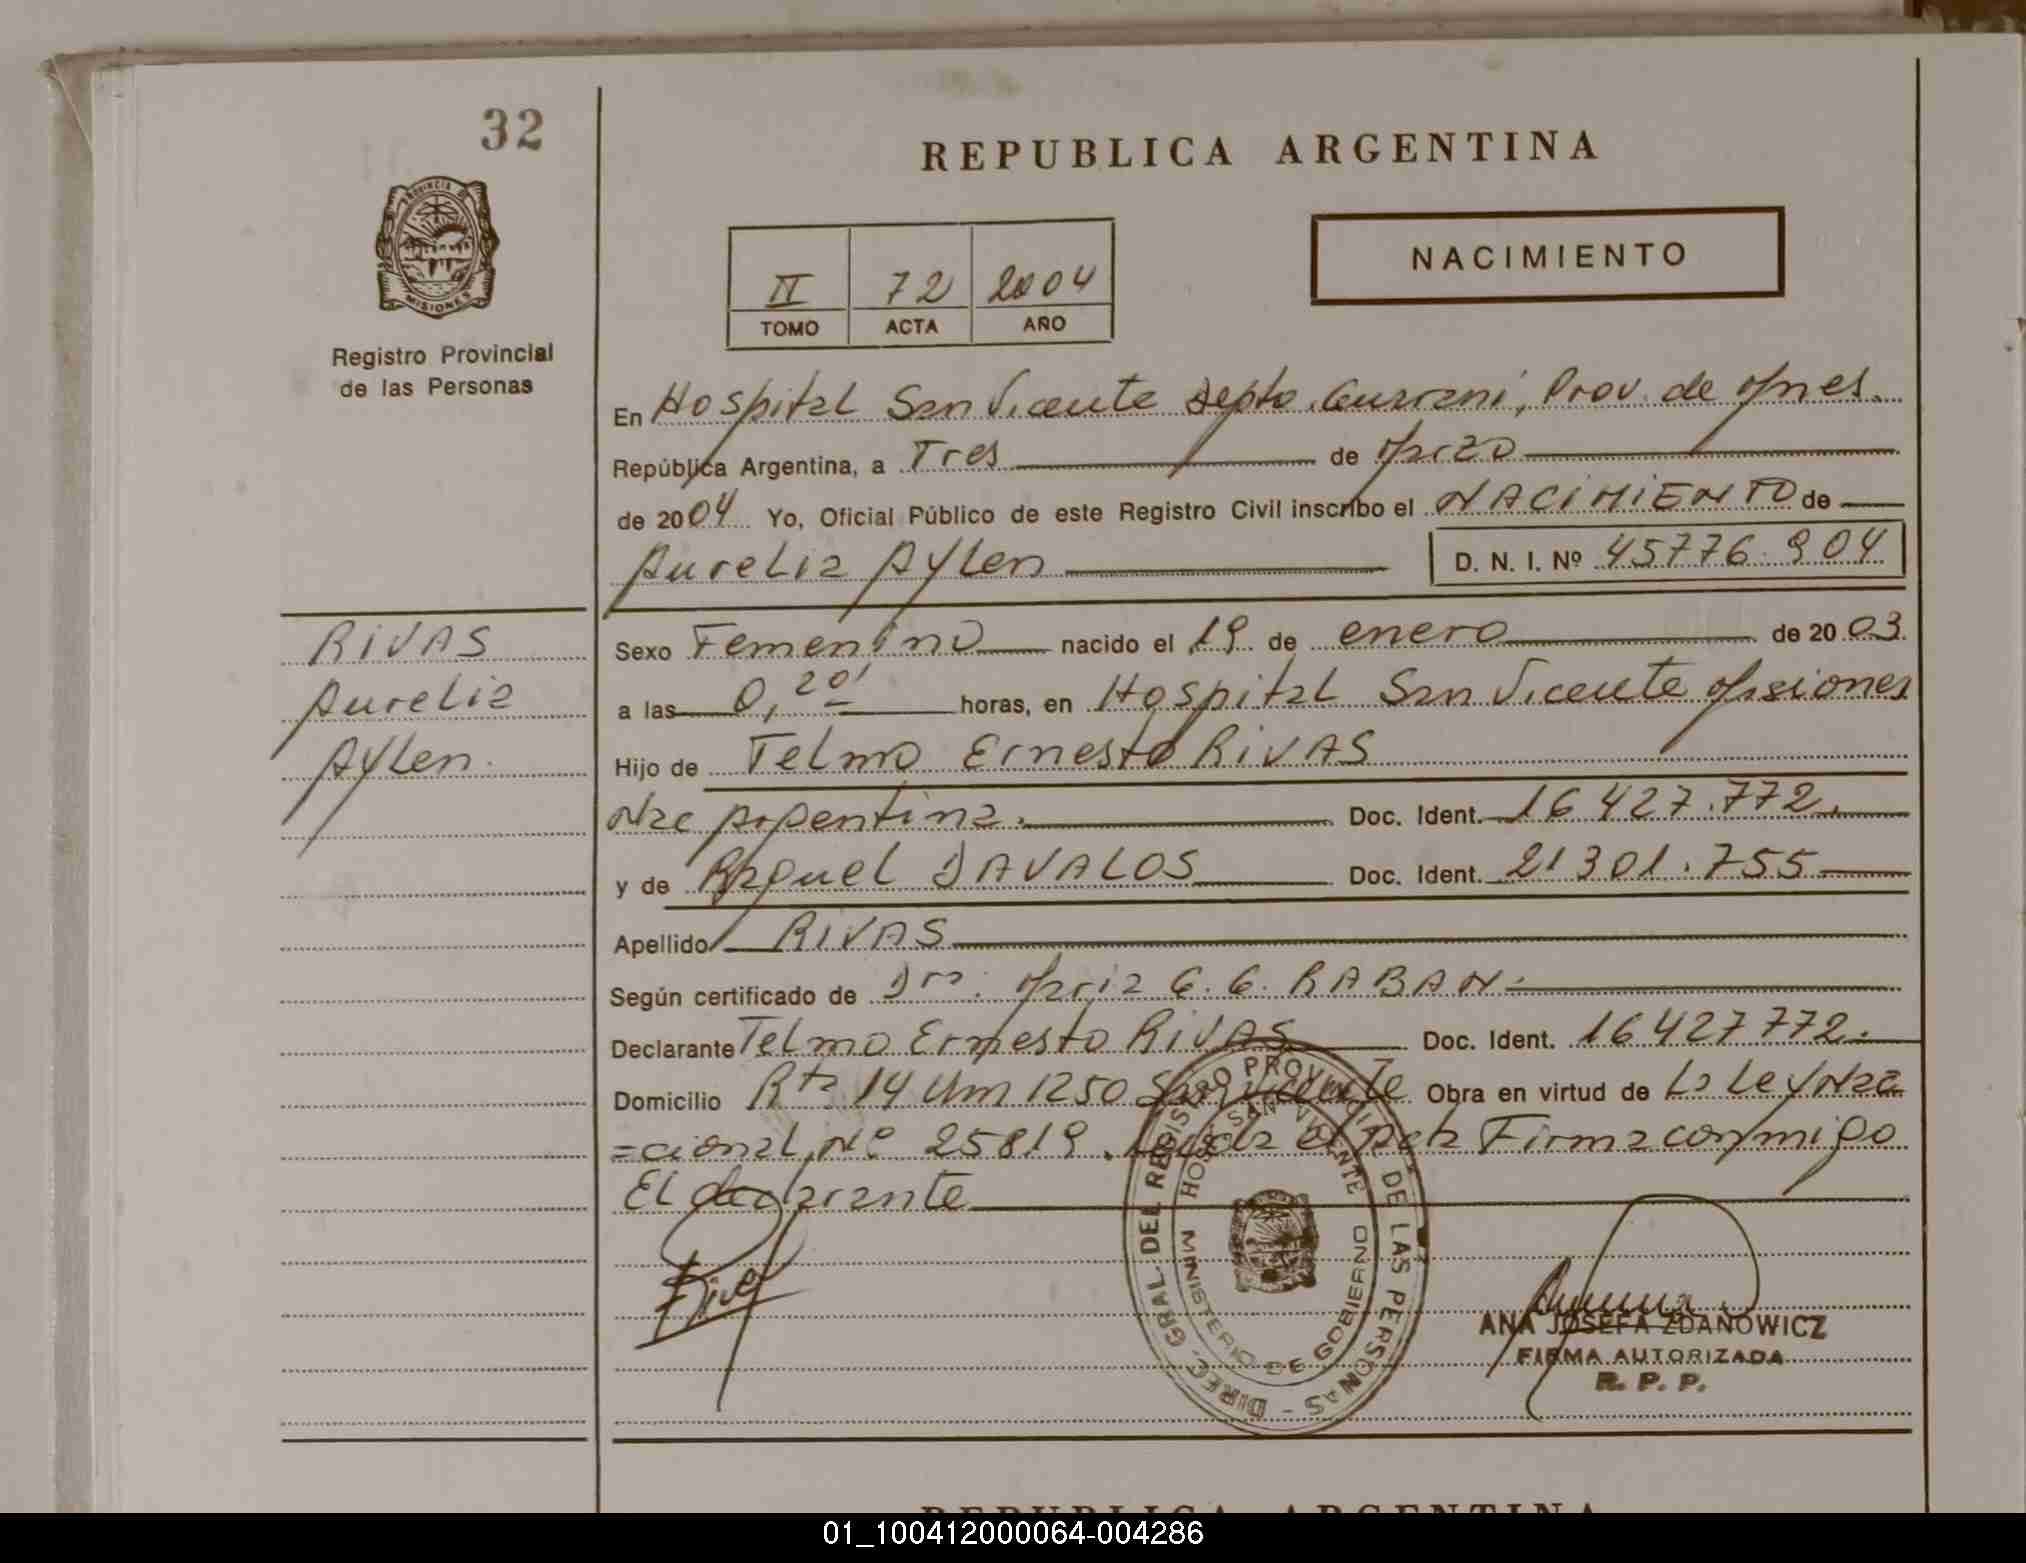 32
REPUBLICA ARGENTINA
PROVINCIA DE
MISIONES
Registro Provincial
de las Personas
NACIMIENTO
II 72 2004
TOMO ACTA AÑO
En Hospital San Vicente Depto. Guarani, Prov. de Mnes.
República Argentina, a Tres de Marzo
de 2004 Yo, Oficial Público de este Registro Civil inscribo el NACIMIENTO de
Aurelia Aylen D. N. I. Nº 45776.904
RIVAS
Aurelia
Aylen.
Sexo Femenino nacido el 19 de enero de 2003
a las 0,20' horas, en Hospital San Vicente Misiones
Hijo de Telmo Ernesto RIVAS
Nac Argentina. Doc. Ident. 16427.772.
y de Raquel DAVALOS Doc. Ident. 21301.755
Apellido RIVAS
Según certificado de Dra. Maria G. G. RABAN.
Declarante Telmo Ernesto RIVAS Doc. Ident. 16427772.
Domicilio Rta 14 Km 1250 San Vicente Obra en virtud de La Ley Na
=cional Nº 25819. Leida el Acta Firma conmigo
El declarante
DIREC. GRAL. DEL REGISTRO PROVINCIAL DE LAS PERSONAS -
HOSP. SAN VICENTE
MINISTERIO DE GOBIERNO
ANA JOSEFA ZDANOWICZ
FIRMA AUTORIZADA
R. P. P.
REPUBLICA ARGENTINA
01_100412000064-004286